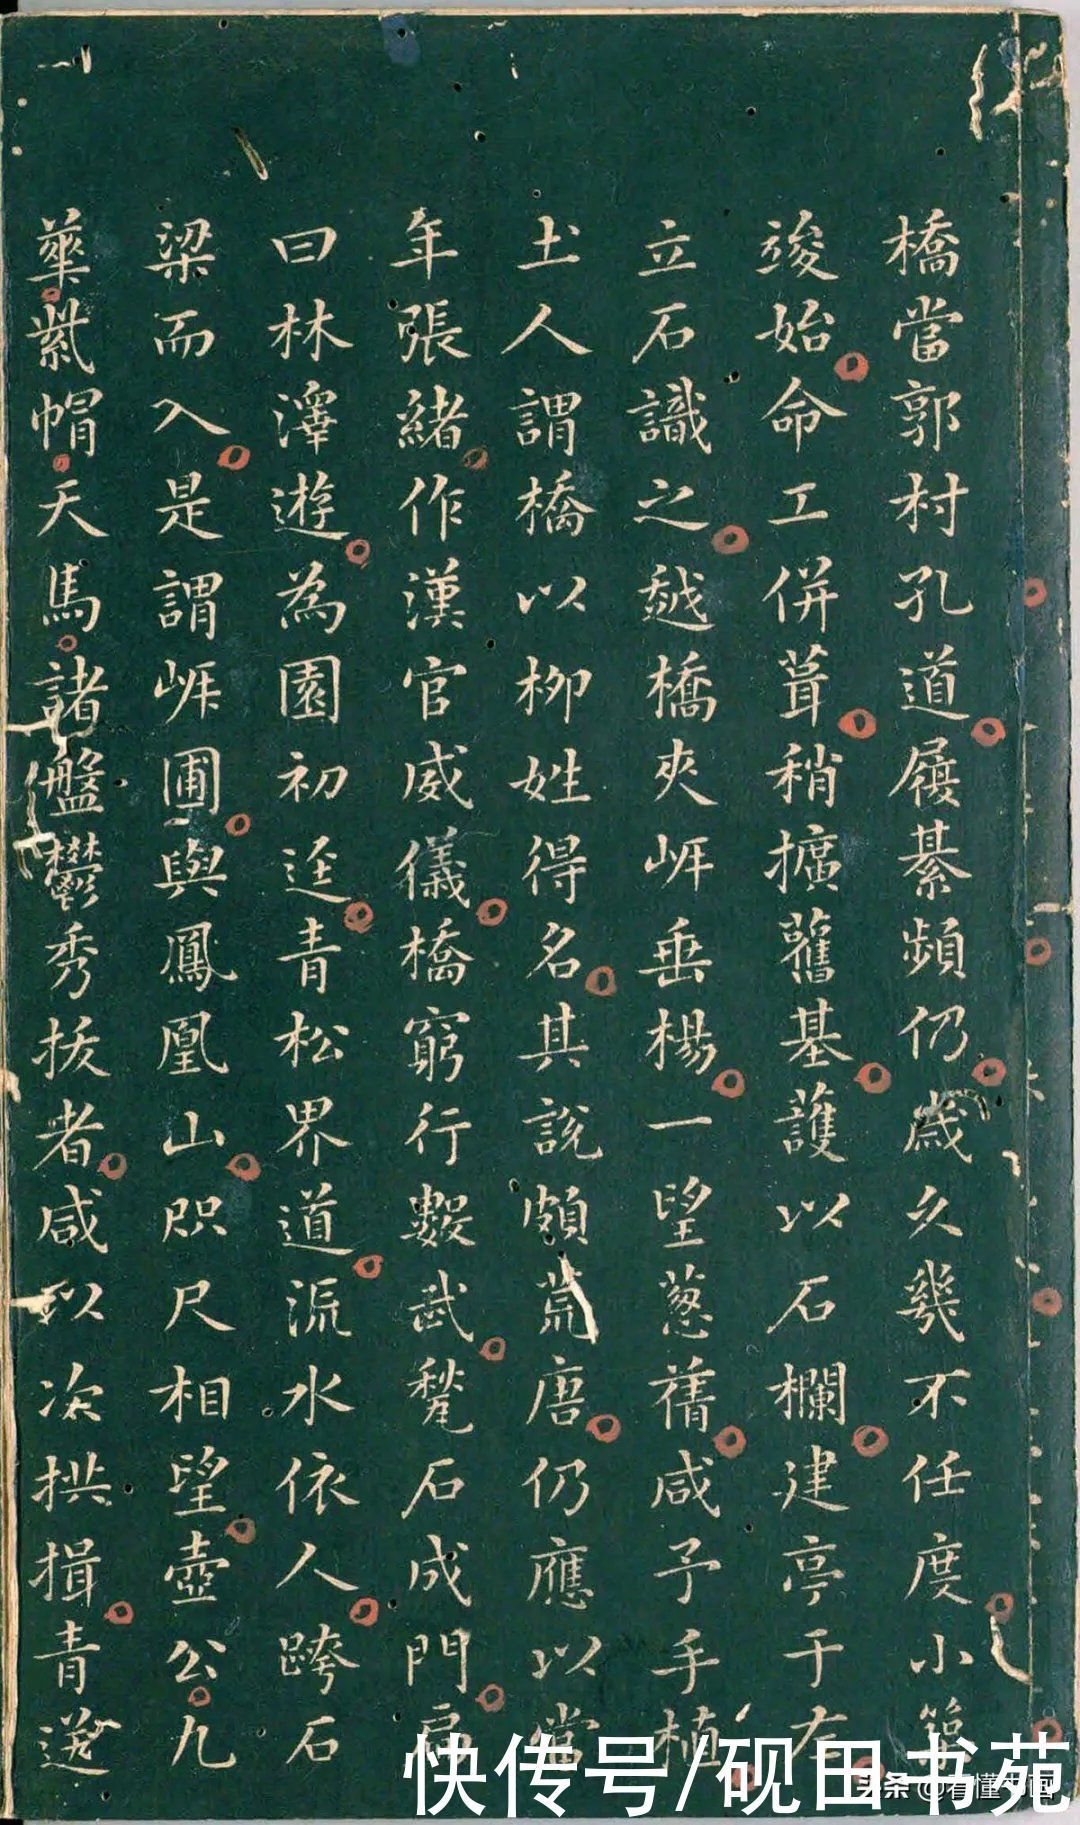 橋當郭村孔道屨綦頻仍歳久幾不任度小築
竣始命工併葺稍擴舊基護以石欄建亭于右
立石識之越橋夾岸垂楊一望葱蒨咸予手植
土人謂橋以柳姓得名其說頗荒唐仍應以當
年張緒作漢官威儀橋窮行數武甃石成門扁
曰林澤遊為園初迳青松界道流水依人跨石
梁而入是謂岸圃與鳳凰山咫尺相望壺公九
華紫帽天馬諸盤鬱秀拔者咸以次拱揖青送
快传号/砚田书苑
头条 @看懂书画